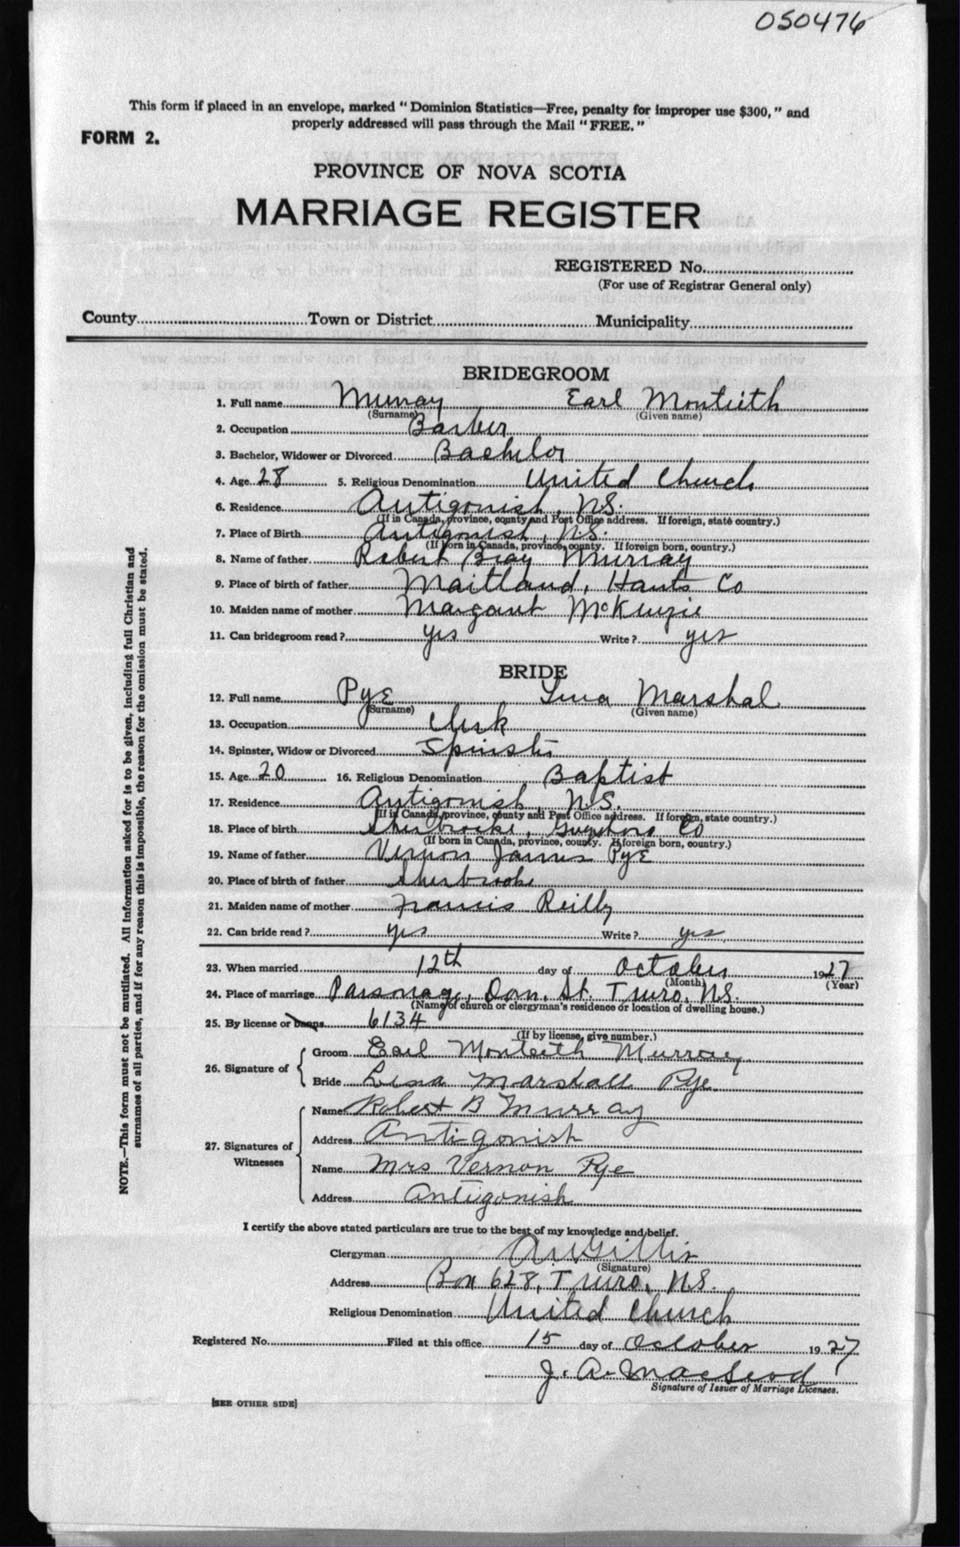 050476
This form if placed in an envelope, marked "Dominion Statistics—Free, penalty for improper use $300," and
properly addressed will pass through the Mail "FREE."
FORM 2.
PROVINCE OF NOVA SCOTIA
MARRIAGE REGISTER
REGISTERED No.
(For use of Registrar General only)
County Town or District Municipality
BRIDEGROOM
1. Full name Murray Earl Monteith
(Surname) (Given name)
2. Occupation Barber
3. Bachelor, Widower or Divorced Bachelor
4. Age 28 5. Religious Denomination United Church
6. Residence Antigonish, N.S.
(If in Canada, province, county and Post Office address. If foreign, state country.)
7. Place of Birth Antigonish, N.S.
(If born in Canada, province, county. If foreign born, country.)
8. Name of father Robert Murray
9. Place of birth of father Maitland, Hants Co
10. Maiden name of mother Margaret McKenzie
11. Can bridegroom read? yes Write? yes
BRIDE
12. Full name Pye Lina Marshal
(Surname) (Given name)
13. Occupation Clerk
14. Spinster, Widow or Divorced Spinster
15. Age 20 16. Religious Denomination Baptist
17. Residence Antigonish, N.S.
(If in Canada, province, county and Post Office address. If foreign, state country.)
18. Place of birth Sherbrooke, Guysboro Co
(If born in Canada, province, county. If foreign born, country.)
19. Name of father Vernon James Pye
20. Place of birth of father Sherbrooke
21. Maiden name of mother Francis Reilly
22. Can bride read? yes Write? yes
23. When married 12th day of October 1927
(Month) (Year)
24. Place of marriage Parsonage, Dom. St. Truro, N.S.
(Name of church or clergyman's residence or location of dwelling house.)
25. By license or banns 6134
(If by license, give number.)
26. Signature of
Groom Earl Monteith Murray
Bride Lina Marshall Pye
27. Signatures of Witnesses
Name Robert B Murray
Address Antigonish
Name Mrs Vernon Pye
Address Antigonish
I certify the above stated particulars are true to the best of my knowledge and belief.
Clergyman Gillis
(Signature)
Address Box 628, Truro, N.S.
Religious Denomination United Church
Registered No. Filed at this office 15 day of October 1927
J. A. MacLeod
Signature of Issuer of Marriage Licenses.
[SEE OTHER SIDE]
NOTE.—This form must not be mutilated. All information asked for is to be given, including full Christian and
surnames of all parties, and if for any reason this is impossible, the reason for the omission must be stated.